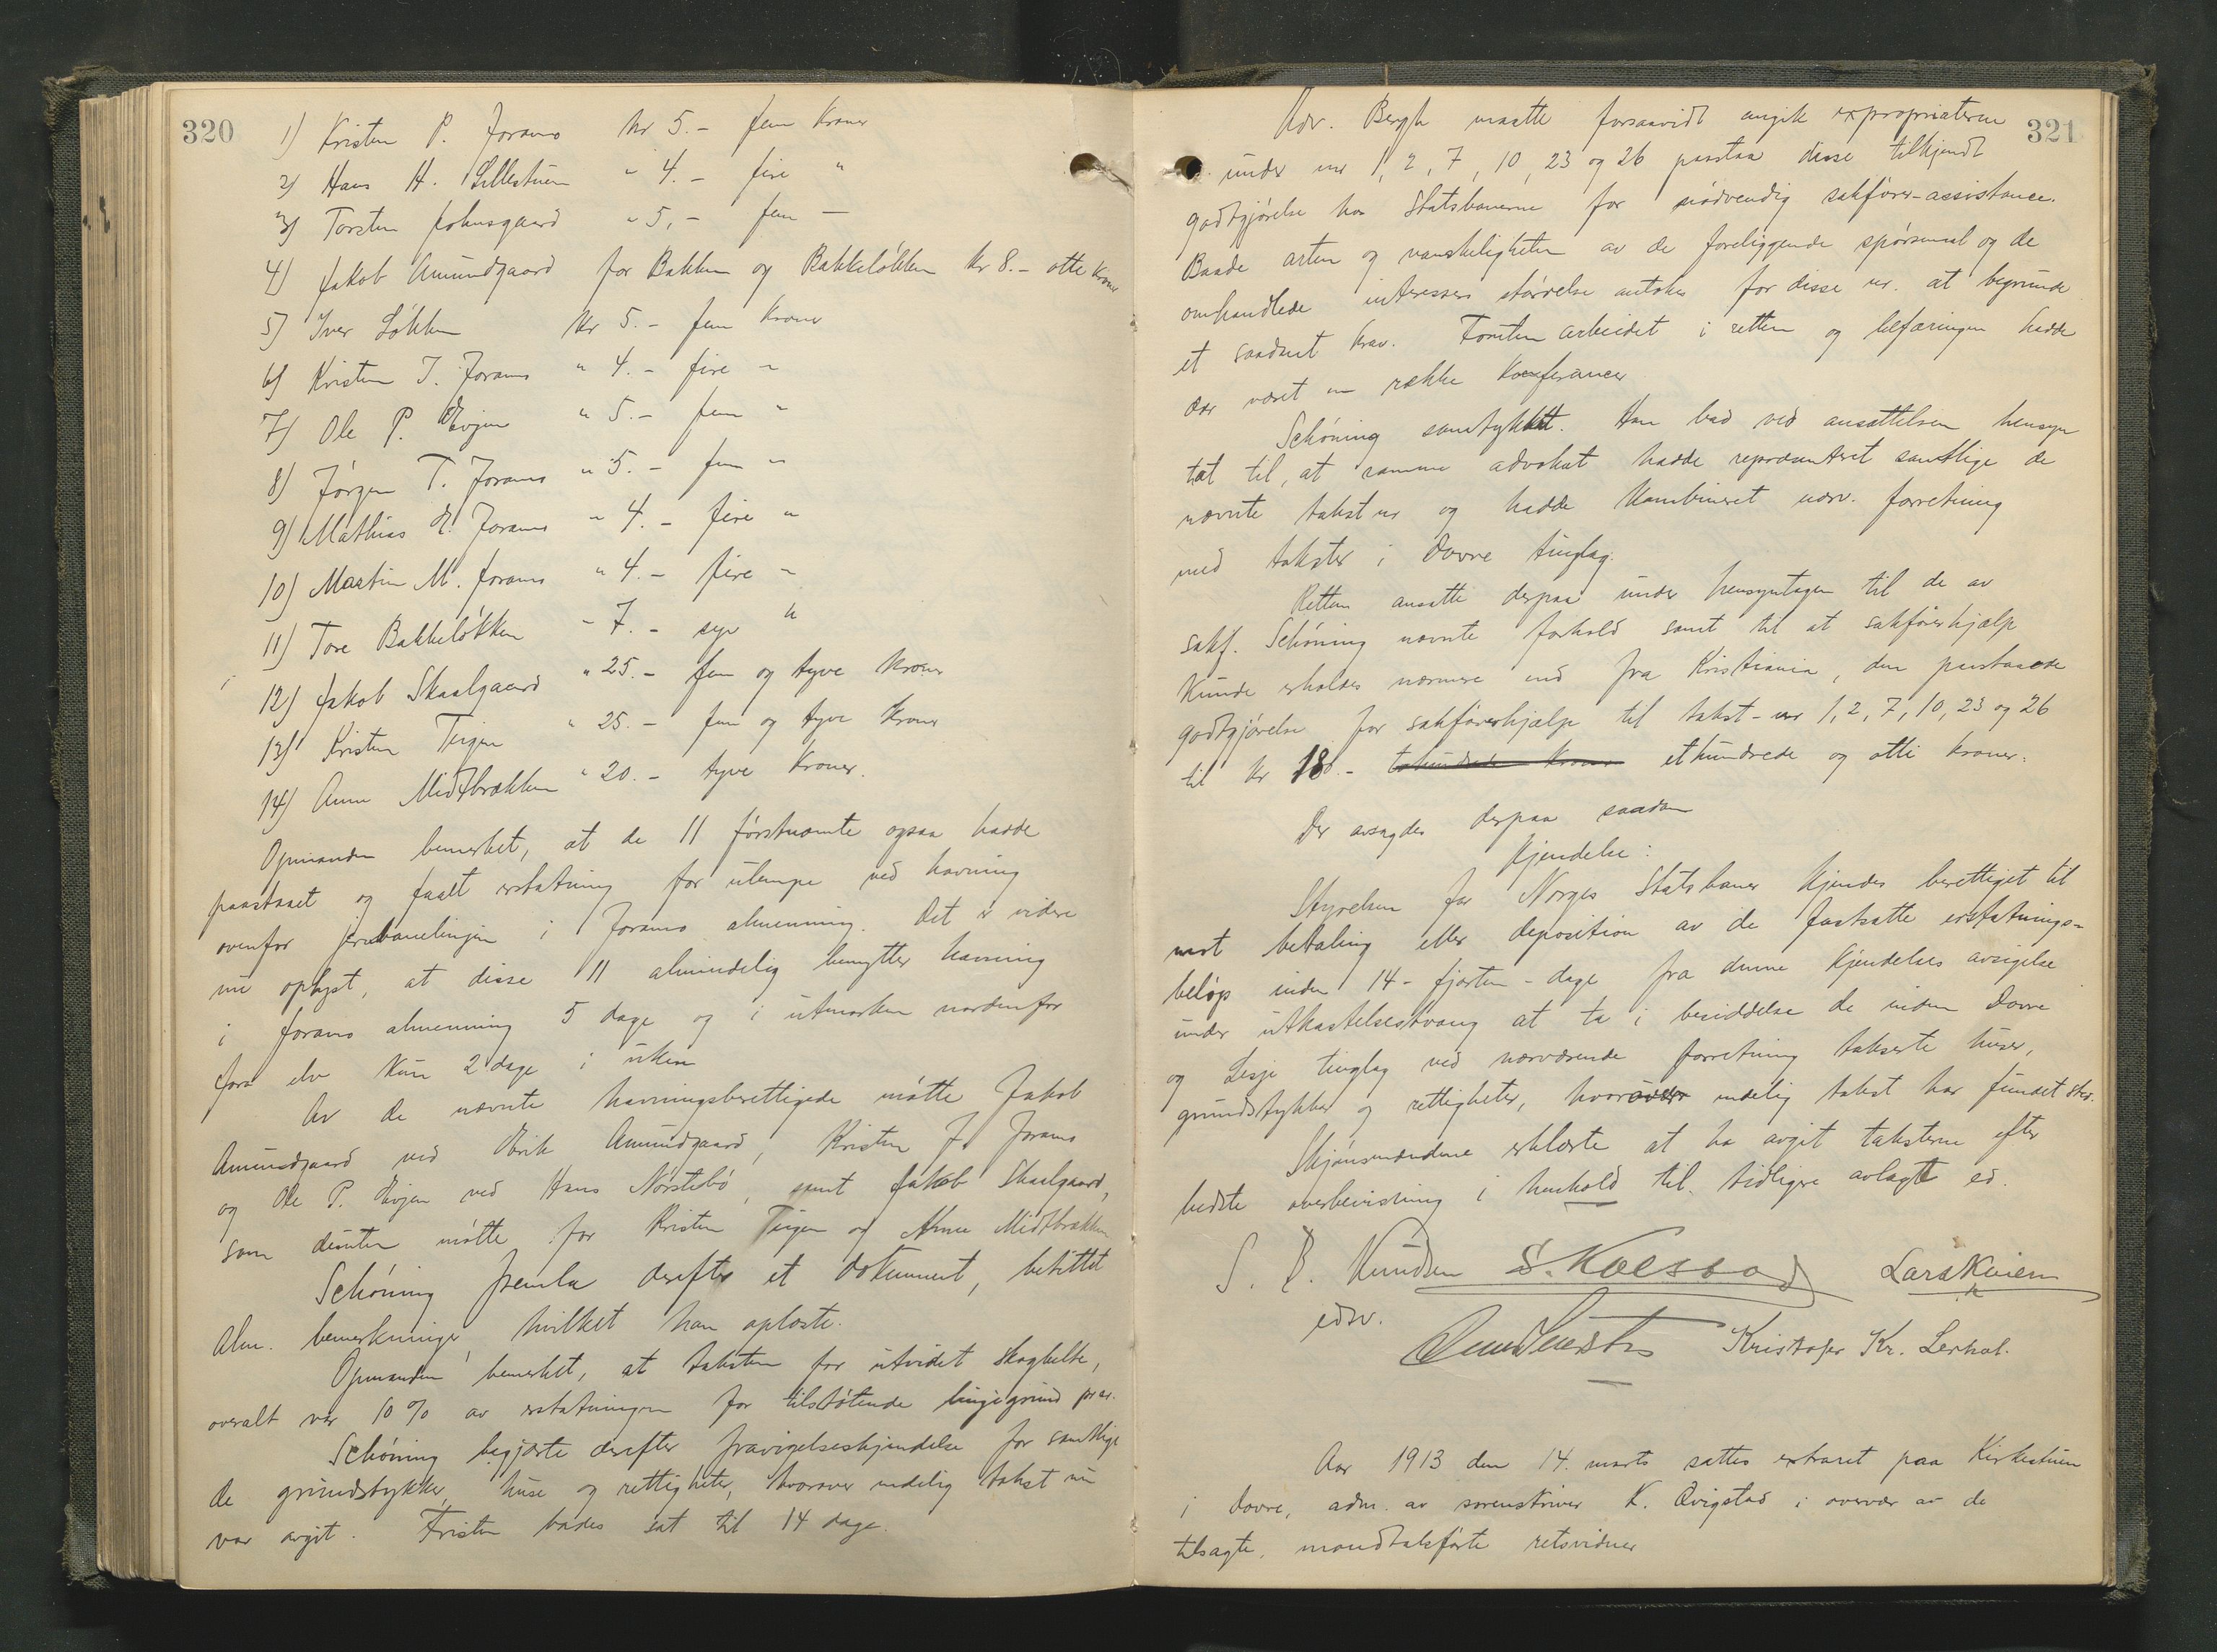 320
1) Kristen P. Joramo kr 5.- fem kroner
2) Hans H. Lillestuen " 4.- fire "
3) Torsten Johnsgaard " 5,- fem -
4) Jakob Amundgaard for Bakken og Bakkeløkken kr 8.- otte kroner
5) Iver Løkken kr 5.- fem kroner
6) Kristen J. Joramo " 4.- fire "
7) Ole P. Evjen " 5.- fem "
8) Jørgen T. Joramo " 5.- fem "
9) Mathias E. Joramo " 4.- fire "
10) Martin M. Joramo " 4.- fire "
11) Tore Bakkeløkken " 7.- syv "
12) Jakob Skaalgaard " 25.- fem og tyve kroner
13) Kristen Teigen " 25.- fem og tyve kroner
14) Anne Midtbrækken " 20.- tyve kroner.
Opmanden bemerket, at de 11 førstnævnte ogsaa hadde
paastaaet og faat erstatning for ulempe ved havning
ovenfor jernbanelinjen i Joramo almenning. Det er videre
nu oplyst, at disse 11 almindelig benytter havning
i Joramo almenning 5 dage og i utmarken nordenfor
Jora elv kun 2 dage i uken
Av de nævnte havningsberettigede møtte Jakob
Amundgaard ved Erik Amundgaard, Kristen J. Joramo
og Ole P. Evjen ved Hans Nørstebø, samt Jakob Skaalgaard,
som desuten møtte for Kristen Teigen og Anne Midtbrækken
Schøning fremla derefter et dokument, betitlet
alm. bemerkninger, hvilket han oplæste.
Opmanden bemerket, at taksten for utvidet skogbelte,
overalt var 10 % av erstatningen for tilstøtende linjegrund pr ar.
Schøning begjærte derefter fravigelseskjendelse for samtlige
de grundstykker, huse og rettigheter, hvorover endelig takst nu
var avgit. Fristen bades sat til 14 dage.
321
Adv. Bergh maatte forsaavidt angik expropriaterne
under nr 1, 2, 7, 10, 23 og 26 paastaa disse tilkjendt
godtgjørelse hos Statsbanerne for nødvendig sakfører-assistance.
Baade arten og vanskeligheten av de foreliggende spørsmaal og de
omhandlede interessers størrelse antokes for disse nr. at begrunde
et saadant krav. Foruten arbeidet i retten og befaringen hadde
der været en række konferancer
Schøning samtykket. Han bad ved ansættelsen hensyn
tat til, at samme advokat hadde repræsentert samtlige de
nævnte takst nr og hadde kombineret nærv. forretning
med takster i Dovre tinglag.
Retten ansatte derpaa under hensyntagen til de av
sakf. Schøning nævnte forhold samt til at sakførerhjælp
kunde erholdes nærmere end fra Kristiania, den paastaaede
godtgjørelse for sakførerhjælp til takst-nr 1, 2, 7, 10, 23 og 26
til kr 180.- tohundrede kroner ethundrede og otti kroner.
Der avsagdes derpaa saadan
kjendelse:
Styrelsen for Norges Statsbaner kjendes berettiget til
mot betaling eller deposition av de fastsatte erstatnings-
beløp inden 14 - fjorten - dage fra denne kjendelses avsigelse
under utkastelsestvang at ta i besiddelse de inden Dovre
og Lesje tinglag ved nærværende forretning takserte huser,
grundstykker og rettigheter, hvorover endelig takst har fundet sted.
Skjønsmændene erklærte at ha avgit taksterne efter
bedste overbevisning i henhold til tidligere avlagt ed.
S. B. Knudsen S. Kolstad Lars Kvien
edsv.
Kristofer Kr. Lerhol.
Aar 1913 den 14. marts sattes extraret paa Kirkestuen
i Dovre, adm. av sorenskriver K. Qvigstad i overvær av de
tilsagte, mandtalsførte retsvidner